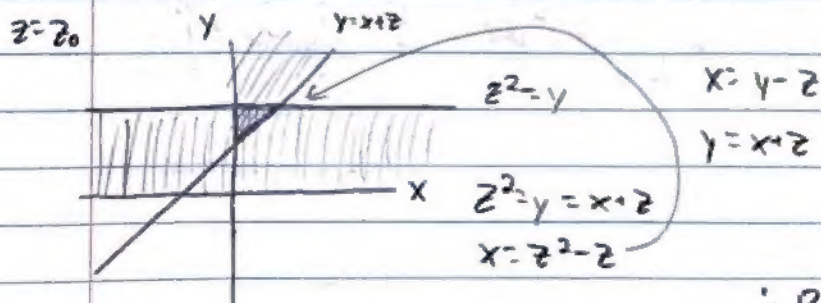 z=z₀
y
y=x+z
z²=y
x=y-z
y=x+z
x
z²=y=x+z
x=z²-z